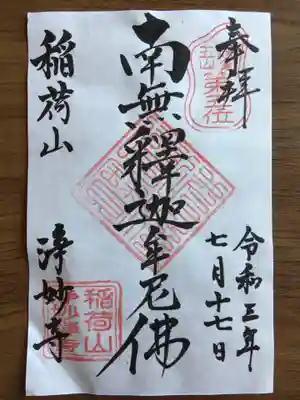 奉拝
令和三年
七月十七日
南無釋迦牟尼佛
稲荷山
浄妙寺
稲荷山